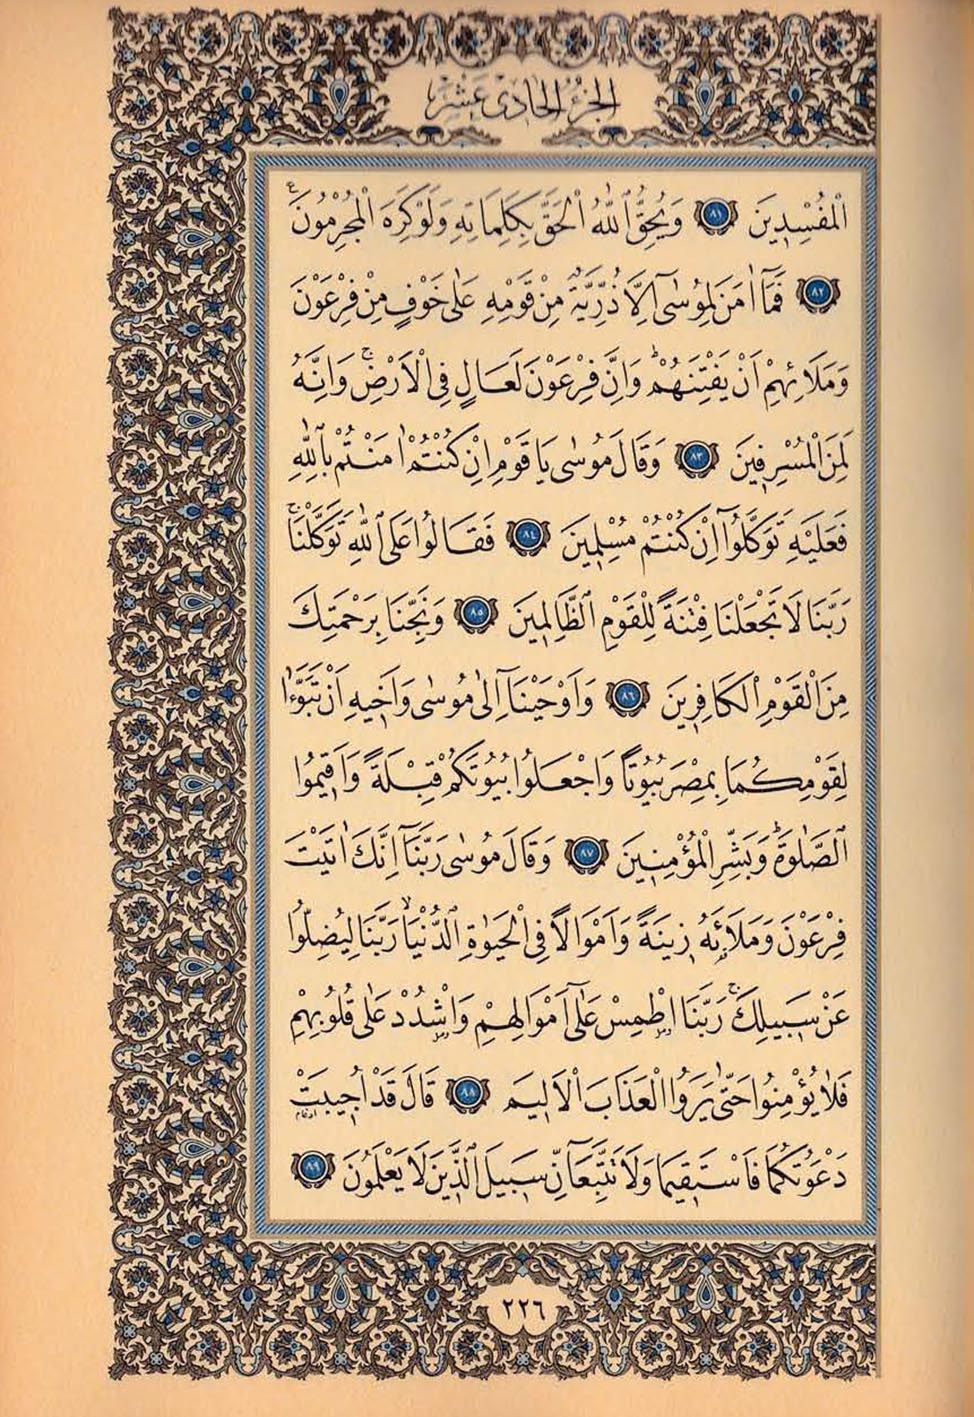 الجزء الحادى عشر
الْمُفْسِدِينَ ٨١ وَيُحِقُّ اللّٰهُ الْحَقَّ بِكَلِمَاتِهِ وَلَوْ كَرِهَ الْمُجْرِمُونَ ع
٨٢ فَمَٓا اٰمَنَ لِمُوسٰٓى اِلَّا ذُرِّيَّةٌ مِنْ قَوْمِهِ عَلٰى خَوْفٍ مِنْ فِرْعَوْنَ
وَمَلَا۬ئِهِمْ اَنْ يَفْتِنَهُمْۜ وَاِنَّ فِرْعَوْنَ لَعَالٍ فِى الْاَرْضِۚ وَاِنَّهُ
لَمِنَ الْمُسْرِفِينَ ٨٣ وَقَالَ مُوسٰى يَا قَوْمِ اِنْ كُنْتُمْ اٰمَنْتُمْ بِاللّٰهِ
فَعَلَيْهِ تَوَكَّلُٓوا اِنْ كُنْتُمْ مُسْلِمِينَ ٨٤ فَقَالُوا عَلَى اللّٰهِ تَوَكَّلْنَاۚ
رَبَّنَا لَا تَجْعَلْنَا فِتْنَةً لِلْقَوْمِ الظَّالِمِينَ ٨٥ وَنَجِّنَا بِرَحْمَتِكَ
مِنَ الْقَوْمِ الْكَافِرِينَ ٨٦ وَاَوْحَيْنَٓا اِلٰى مُوسٰى وَاَخِيهِ اَنْ تَبَوَّءَا
لِقَوْمِكُمَا بِمِصْرَ بُيُوتًا وَاجْعَلُوا بُيُوتَكُمْ قِبْلَةً وَاَقِيمُوا
الصَّلٰوةَۜ وَبَشِّرِ الْمُؤْمِنِينَ ٨٧ وَقَالَ مُوسٰى رَبَّنَٓا اِنَّكَ اٰتَيْتَ
فِرْعَوْنَ وَمَلَاَئَهُ زِينَةً وَاَمْوَالًا فِى الْحَيٰوةِ الدُّنْيَاۙ رَبَّنَا لِيُضِلُّوا
عَنْ سَبِيلِكَۚ رَبَّنَا اطْمِسْ عَلٰٓى اَمْوَالِهِمْ وَاشْدُدْ عَلٰى قُلُوبِهِمْ
فَلَا يُؤْمِنُوا حَتّٰى يَرَوُا الْعَذَابَ الْاَلِيمَ ٨٨ قَالَ قَدْ اُجِيبَتْ
دَعْوَتُكُمَا فَاسْتَقِيمَا وَلَا تَتَّبِعَٓانِّ سَبِيلَ الَّذِينَ لَا يَعْلَمُونَ ٨٩
٢٢٦